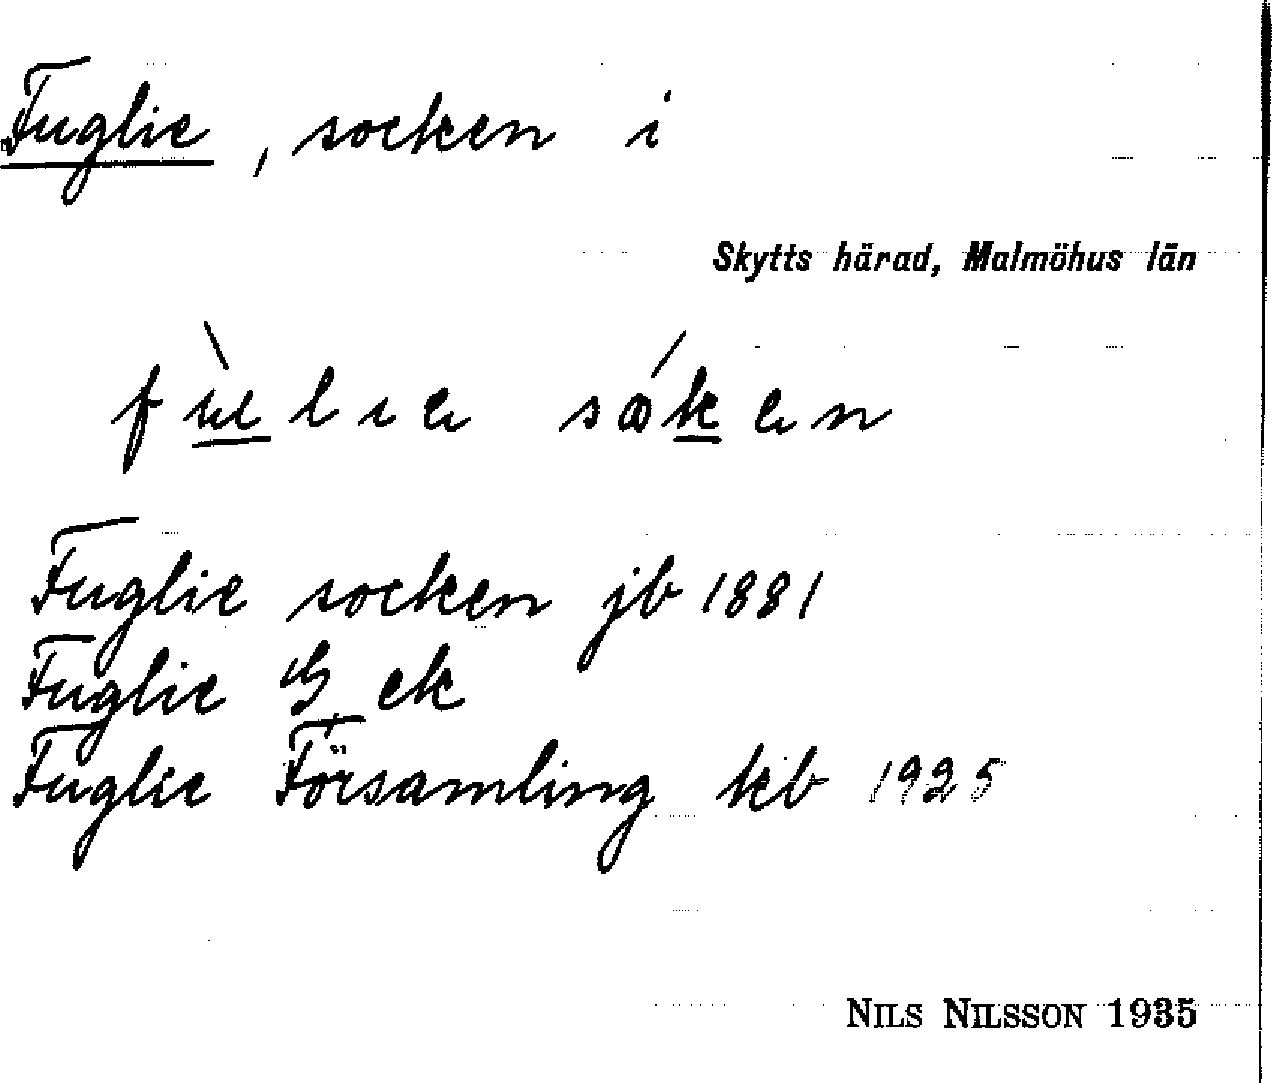 Fuglie, socken i
Skytts härad, Malmöhus län
Fuglie socken jb 1881
Fuglie G ek
Fuglie Församling kb 1925
NILS NILSSON 1935